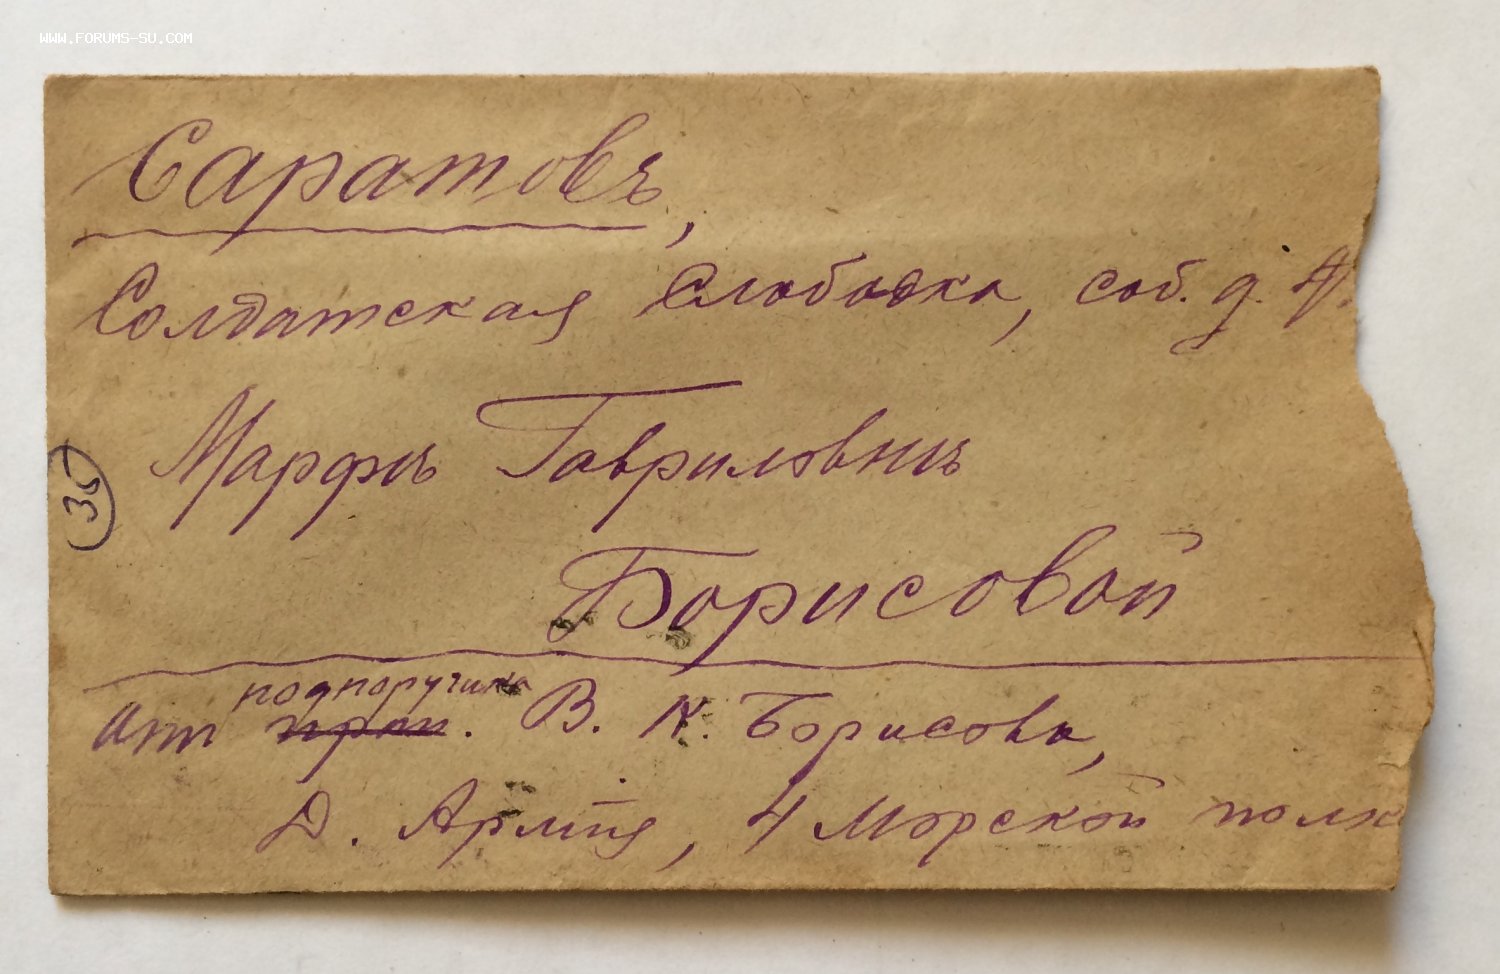 WWW.FORUMS-SU.COM
Саратовъ,
Солдатская Слободка, соб. д.
Марфѣ Гавриловнѣ
Борисовой
35
подпоручика
Отъ прап. В. К. Борисова,
Д. Армія, 4 Морской полк